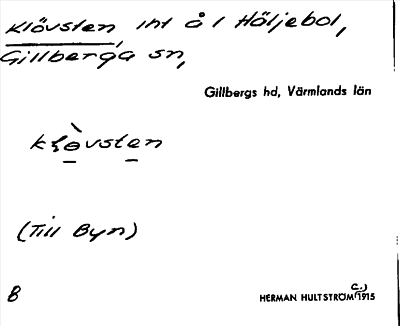 Klövsten, int å 1 Höljebol,
Gillberga sn,
Gillbergs hd, Värmlands län
(Till Byn)
B
HERMAN HULTSTRÖM (C.) 1915